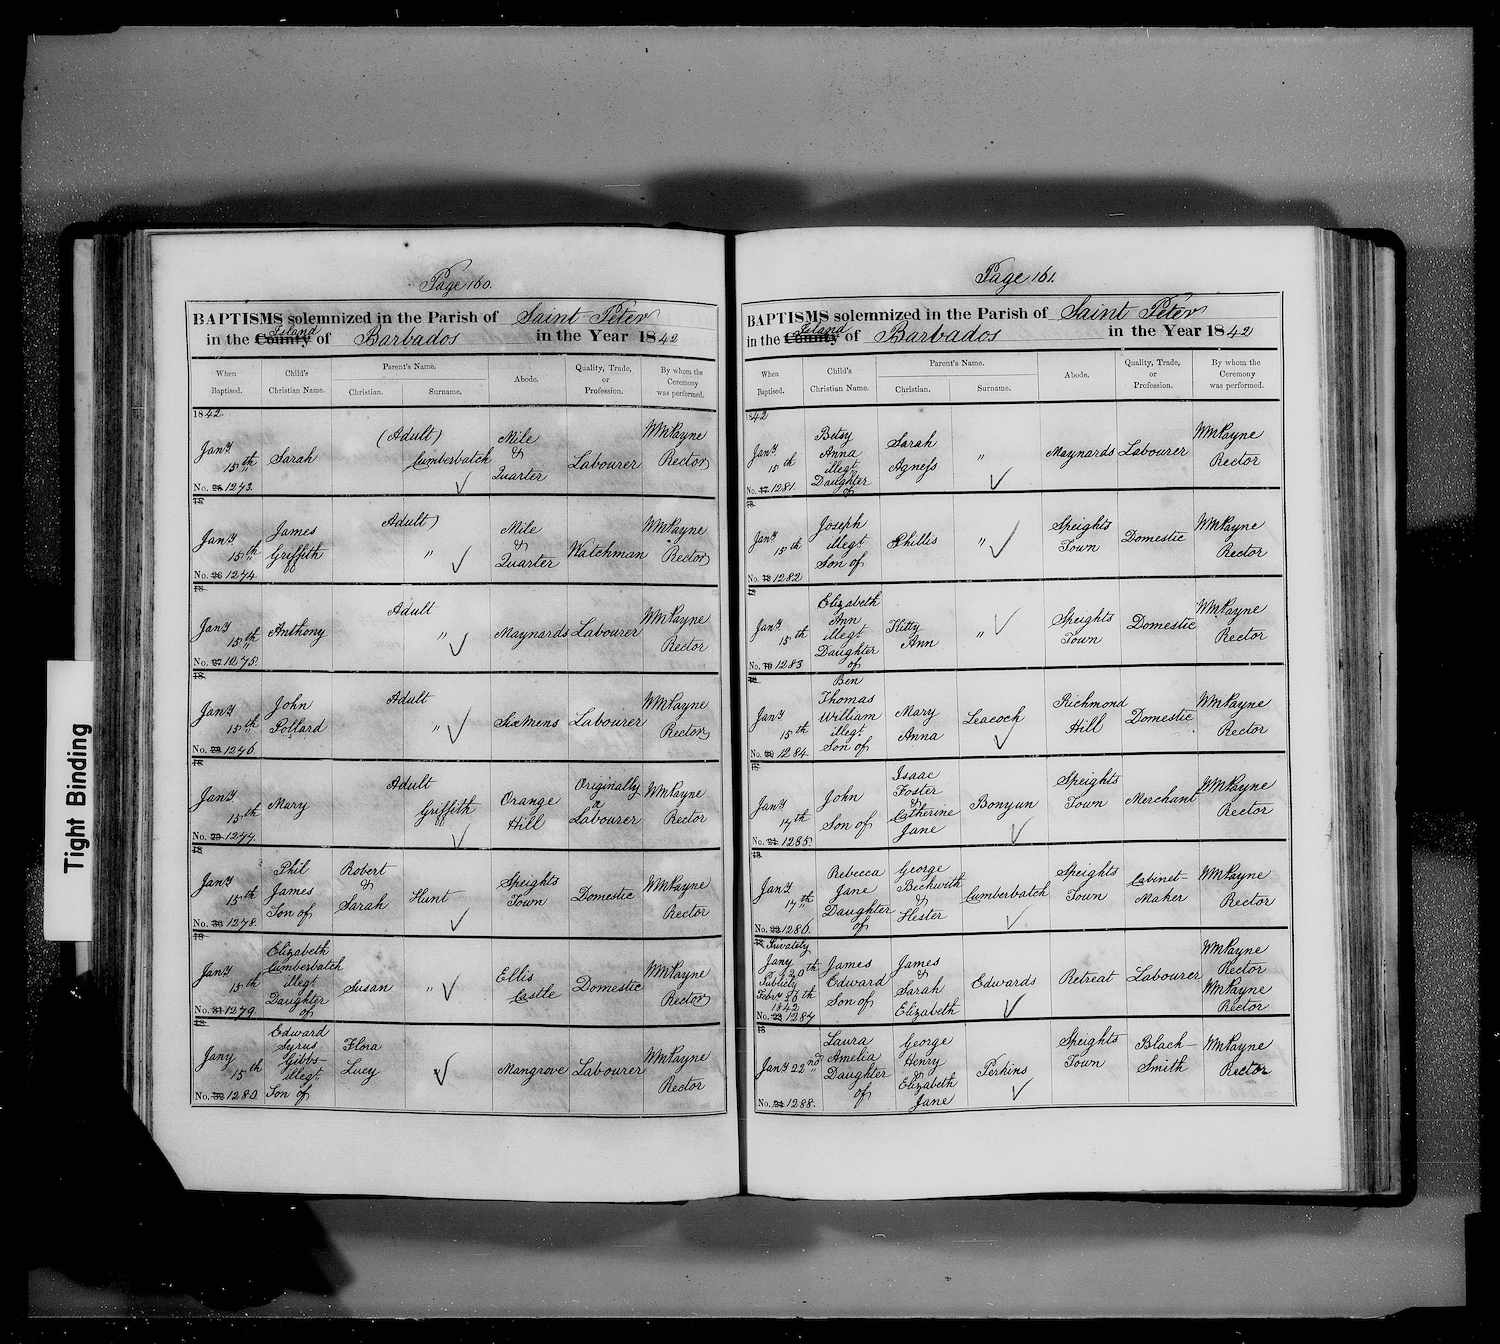 Tight Binding
Page 160.
BAPTISMS solemnized in the Parish of Saint Peter
Island
in the County of Barbados in the Year 1842
When Baptised. Child's Christian Name. Parent's Name. Christian. Surname. Abode. Quality, Trade, or Profession. By whom the Ceremony was performed.
1842.
Jany 15th Sarah (Adult) Cumberbatch Mile & Quarter Labourer WmPayne Rector
No. 1273.
18
Jany 15th James Griffith Adult) " Mile & Quarter Watchman WmPayne Rector
No. 26 1274.
18
Jany 15th Anthony Adult " Maynards Labourer WmPayne Rector
No. 27 1275.
18
Jany 15th John Pollard Adult " Six Mens Labourer WmPayne Rector
No. 28 1276.
18
Jany 15th Mary Adult Griffith Orange Hill Originally a Labourer WmPayne Rector
No. 29 1277.
18
Jany 15th Phil James Son of Robert & Sarah Hunt Speights Town Domestic WmPayne Rector
No. 30 1278.
18
Jany 15th Elizabeth Cumberbatch illegt Daughter of Susan " Ellis Castle Domestic WmPayne Rector
No. 31 1279.
18
Jany 15th Edward Syrus Gibbs- illegt. Son of Flora Lucy Mangrove Labourer WmPayne Rector
No. 32 1280
Page 161.
BAPTISMS solemnized in the Parish of Saint Peter
Island
in the County of Barbados in the Year 1842
When Baptised. Child's Christian Name. Parent's Name. Christian. Surname. Abode. Quality, Trade, or Profession. By whom the Ceremony was performed.
1842
Jany 15th Betsy Anna illegt Daughter of Sarah Agness " Maynards Labourer WmPayne Rector
No. 17 1281.
18
Jany 15th Joseph illegt Son of Phillis " Speights Town Domestic WmPayne Rector
No. 18 1282
18
Jany 15th Elizabeth Ann illegt Daughter of Kitty Ann " Speights Town Domestic WmPayne Rector
No. 19 1283
18
Jany 15th Ben Thomas William illegt Son of Mary Anna Leacock Richmond Hill Domestic WmPayne Rector
No. 20 1284.
18
Jany 17th John Son of Isaac Foster & Catherine Jane Bonyun Speights Town Merchant WmPayne Rector
No. 21 1285.
18
Jany 17th Rebecca Jane Daughter of George Beckwith & Hester Cumberbatch Speights Town Cabinet Maker WmPayne Rector
No. 22 1286.
18
Privately Jany 20th Publicly Feby 26th 1842 James Edward Son of James & Sarah Elizabeth Edwards Retreat Labourer WmPayne Rector WmPayne Rector
No. 23 1287
18
Jany 22nd Laura Amelia Daughter of George Henry & Elizabeth Jane Perkins Speights Town Black- Smith WmPayne Rector
No. 24 1288.